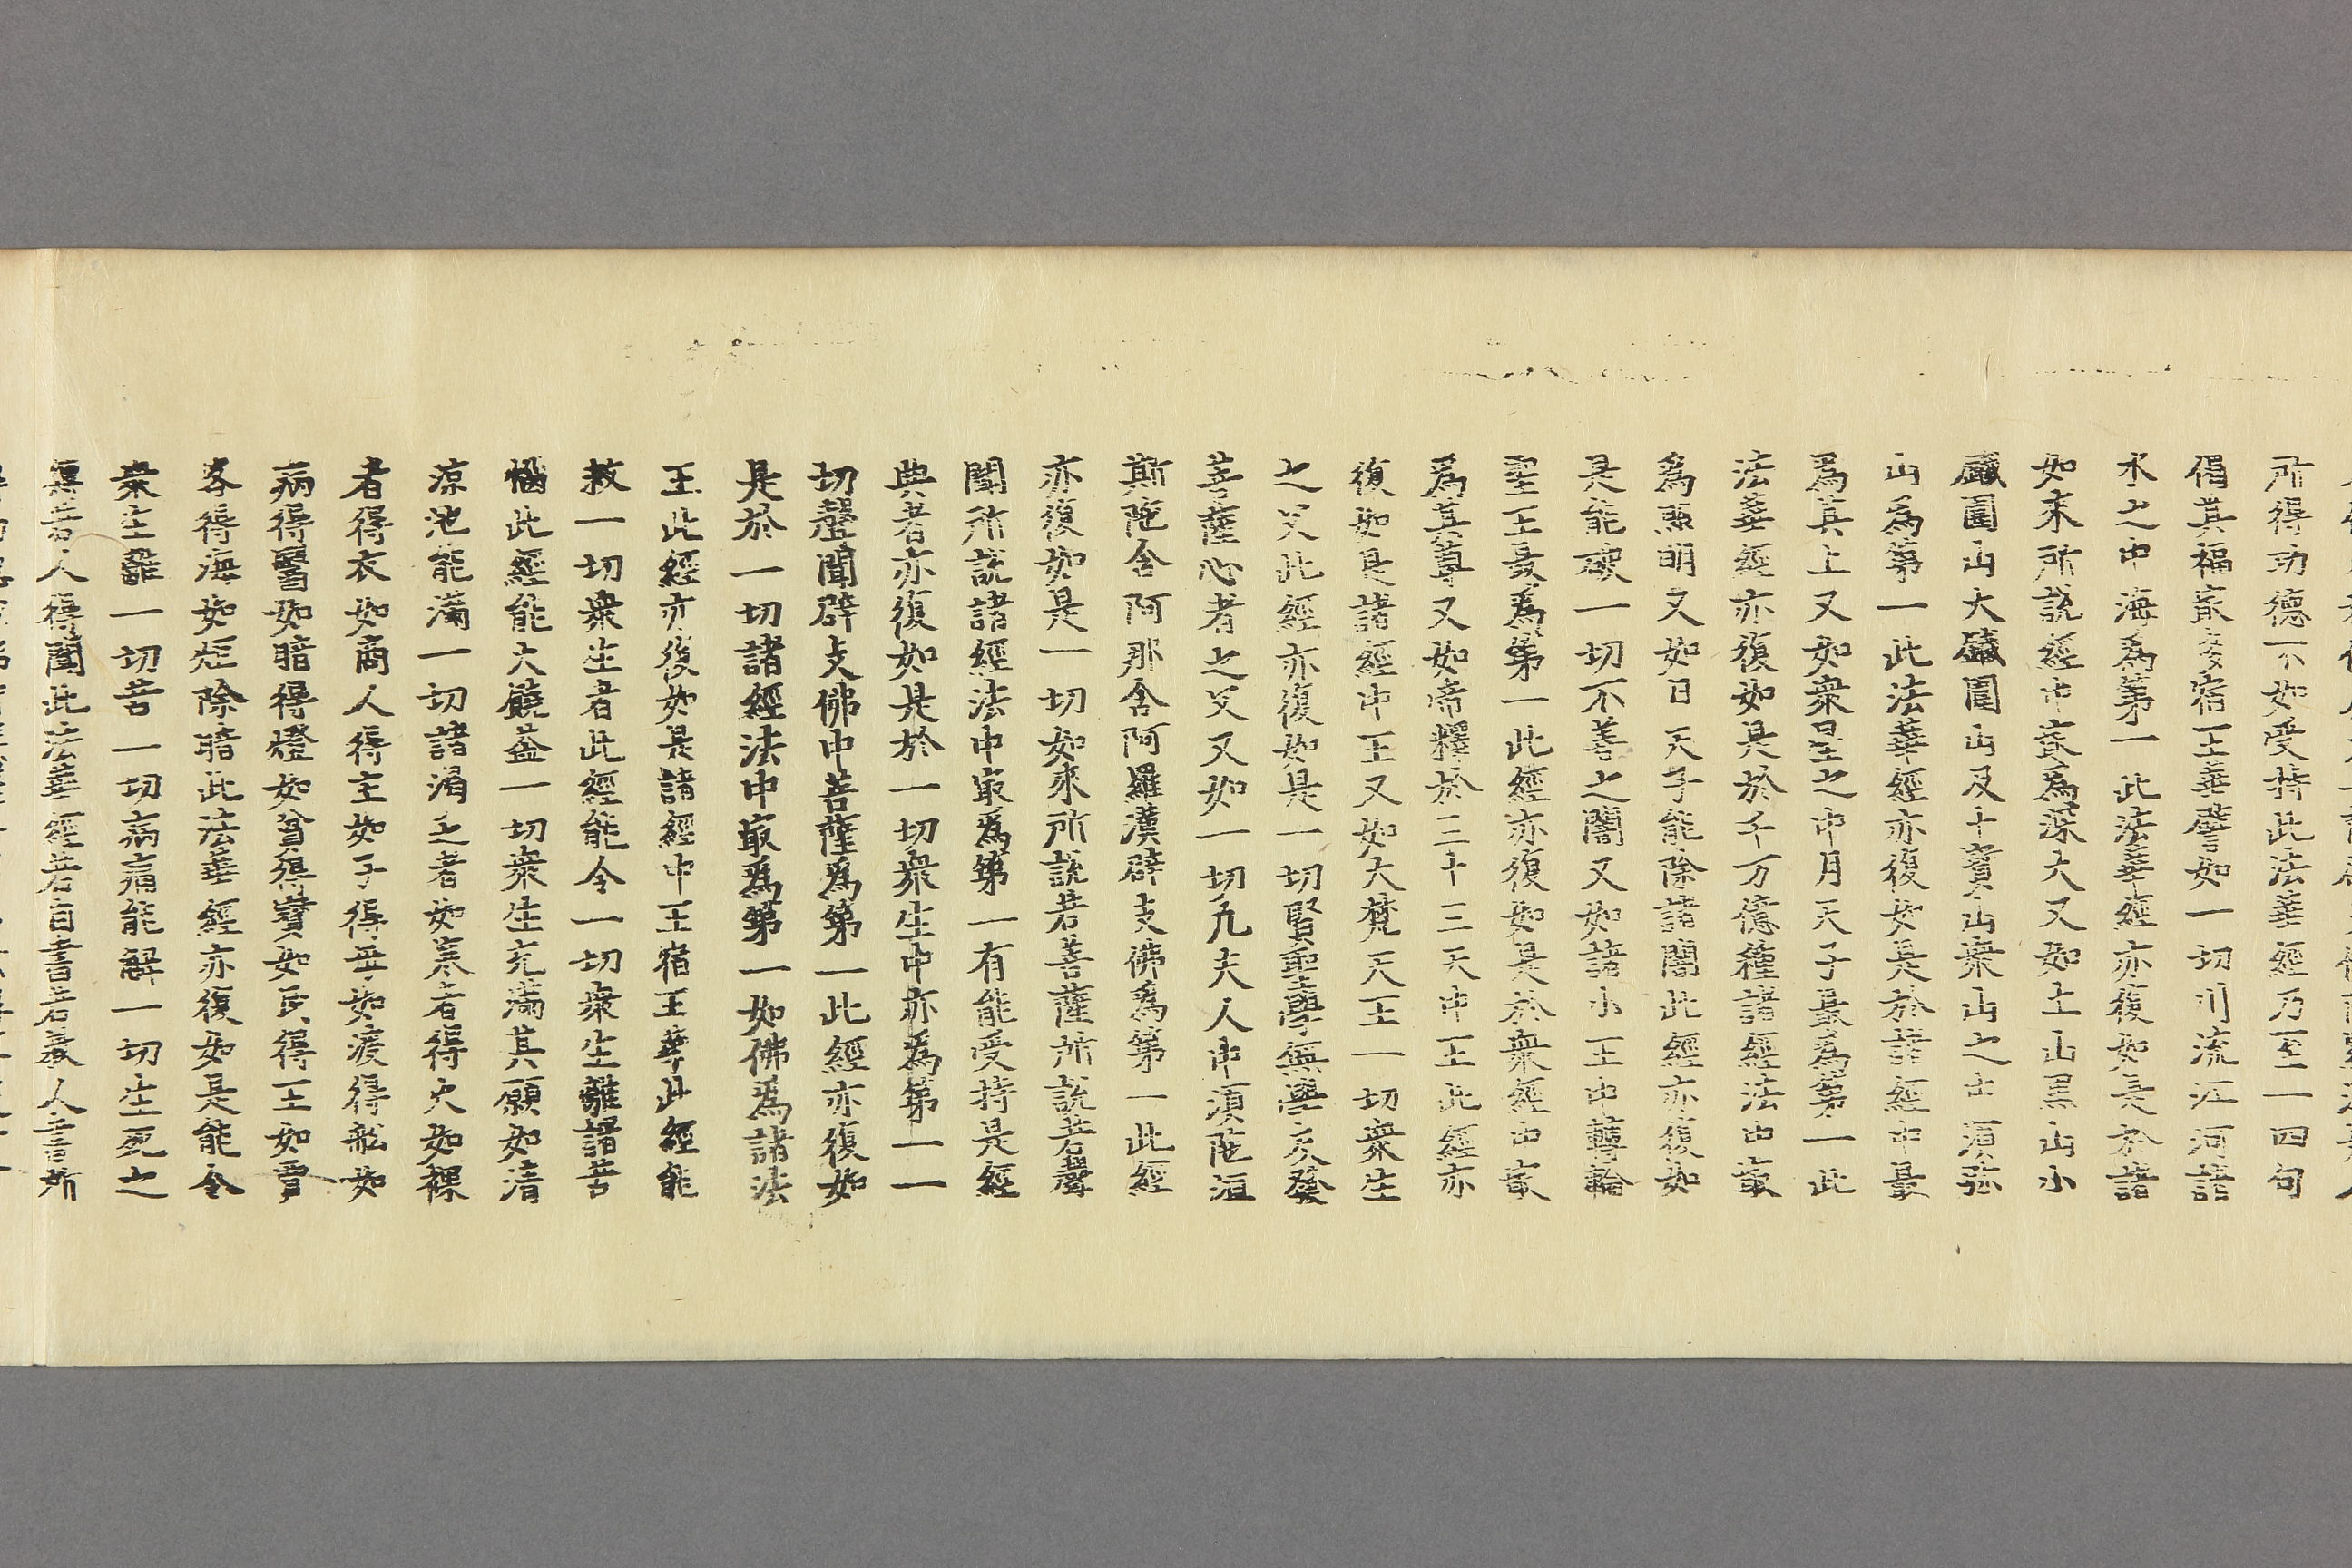 所得功德不如受持此法華經乃至一四句
偈其福最多宿王華譬如一切川流江河諸
水之中海為第一此法華經亦復如是於諸
如來所說經中最為深大又如土山黑山小
鐵圍山大鐵圍山及十寶山衆山之中須弥
山為第一此法華經亦復如是於諸經中最
為其上又如衆星之中月天子最為第一此
法華經亦復如是於千万億種諸經法中最
為照明又如日天子能除諸闇此經亦復如
是能破一切不善之闇又如諸小王中轉輪
聖王最為第一此經亦復如是於衆經中最
為其尊又如帝釋於三十三天中王此經亦
復如是諸經中王又如大梵天王一切衆生
之父此經亦復如是一切賢聖學無學及發
菩薩心者之父又如一切凡夫人中須陁洹
斯陁含阿那含阿羅漢辟支佛為第一此經
亦復如是一切如來所說若菩薩所說若聲
聞所說諸經法中最為第一有能受持是經
典者亦復如是於一切衆生中亦為第一一
切聲聞辟支佛中菩薩為第一此經亦復如
是於一切諸經法中最為第一如佛為諸法
王此經亦復如是諸經中王宿王華此經能
救一切衆生者此經能令一切衆生離諸苦
惱此經能大饒益一切衆生充滿其願如清
涼池能滿一切諸渴乏者如寒者得火如裸
者得衣如商人得主如子得母如渡得舩如
病得醫如暗得燈如貧得寶如民得王如賈
客得海如炬除暗此法華經亦復如是能令
衆生離一切苦一切病痛能解一切生死之
若人得聞此法華經若自書若教人書所